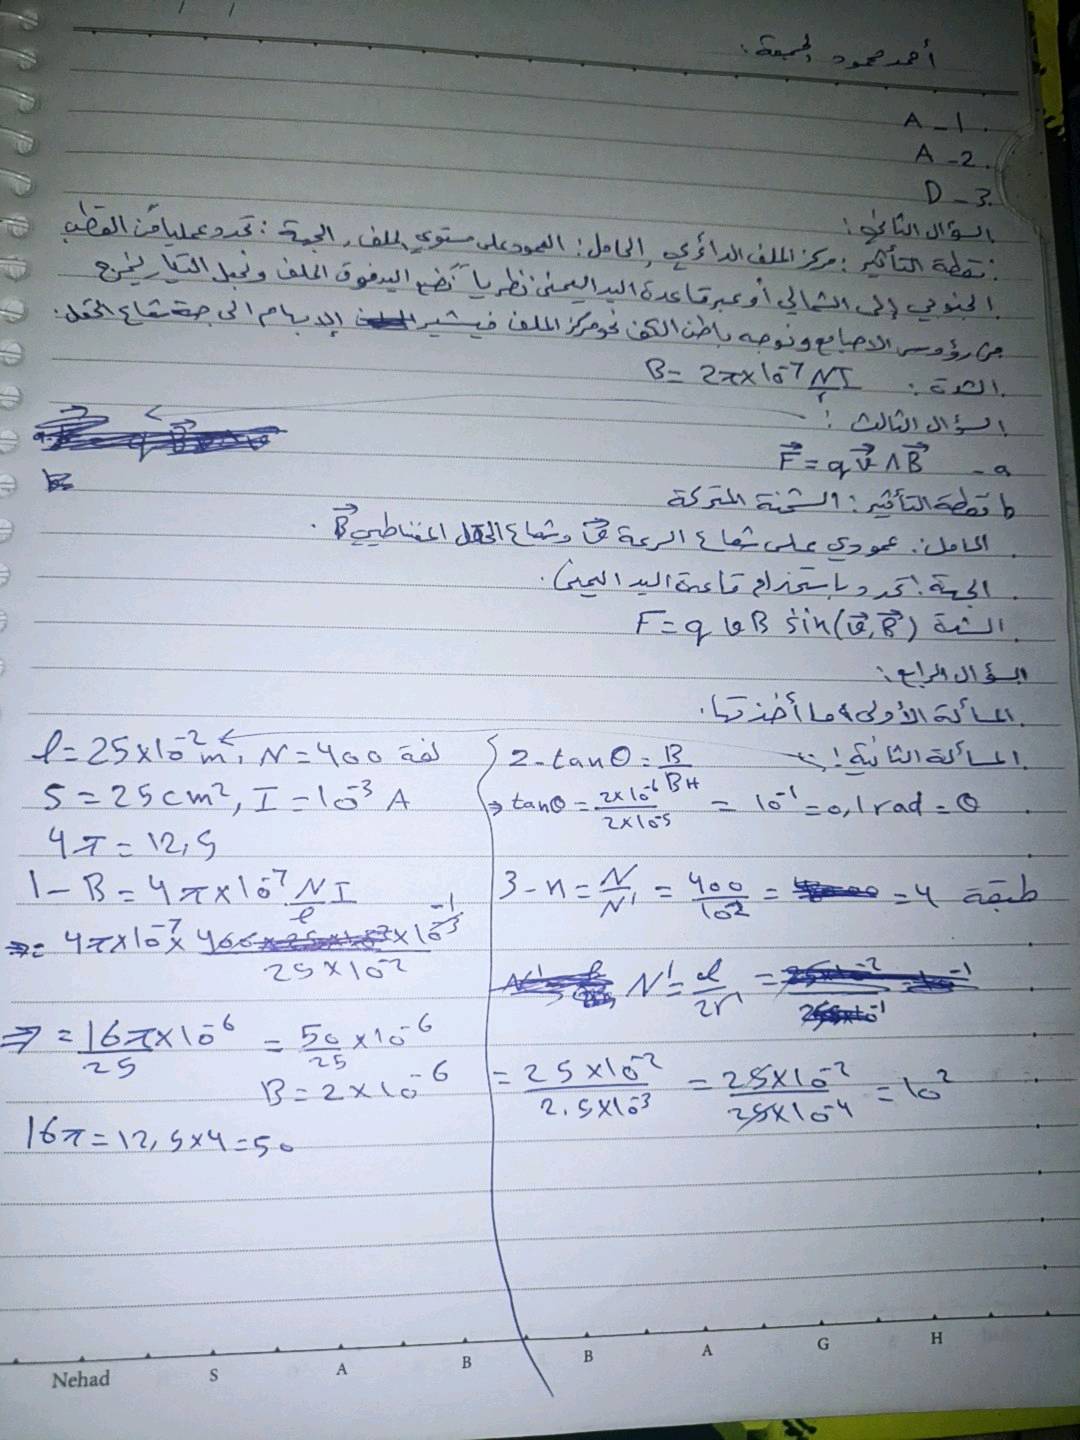 أحمد محمود الجمعة.
A - 1.
A - 2.
D - 3.
السؤال الثاني:
نقطة التأثير: مركز الملف الدائري, الحامل: العمود على مستوي الملف, الجهة: تحدد عملياً من القطب
الجنوبي إلى الشمالي أو عبر قاعدة اليد اليمنى نظرياً نضع اليد فوق الملف ونجعل التيار يخرج
من رؤوس الاصابع ونوجه باطن الكف نحو مركز الملف فيشير الإبهام الى جهة شعاع الحقل.
الشدة: B = 2π×10⁻⁷ NI/r
السؤال الثالث:
a - F⃗ = q v⃗ ∧ B⃗
b نقطة التأثير: الشحنة المتحركة
الحامل: عمودي على شعاع السرعة v⃗ وشعاع الحقل المغناطيسي B⃗.
الجهة: تحدد باستخدام قاعدة اليد اليمنى.
الشدة F = q v B sin(v⃗, B⃗)
السؤال الرابع:
المسألة الأولى ما أخذتها.
المسألة الثانية:
l = 25×10⁻² m, N = 400 لفة
S = 25 cm², I = 10⁻³ A
4π = 12,5
1 - B = 4π×10⁻⁷ NI/l
⇒ = 4π×10⁻⁷ × 400×10⁻³/25×10⁻²
⇒ = 16π×10⁻⁶/25 = 50/25 ×10⁻⁶
B = 2×10⁻⁶
16π = 12,5×4 = 50
2 - tanθ = B/BH
⇒ tanθ = 2×10⁻⁶/2×10⁻⁵ = 10⁻¹ = 0,1 rad = θ
3 - n = N/N' = 400/10² = 4 طبقة
N' = l/2r'
= 25×10⁻²/2.5×10⁻³ = 25×10⁻²/25×10⁻⁴ = 10²
Nehad S A B B A G H